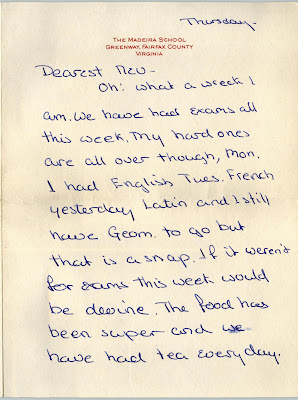 Thursday.
THE MADEIRA SCHOOL
GREENWAY, FAIRFAX COUNTY
VIRGINIA
Dearest Mew-
Oh! what a week I
am. We have had exams all
this week. My hard ones
are all over though, Mon.
I had English Tues. French
yesterday Latin and I still
have Geom. to go but
that is a snap. If it weren't
for exams this week would
be devine. The food has
been super and we
have had tea everyday.